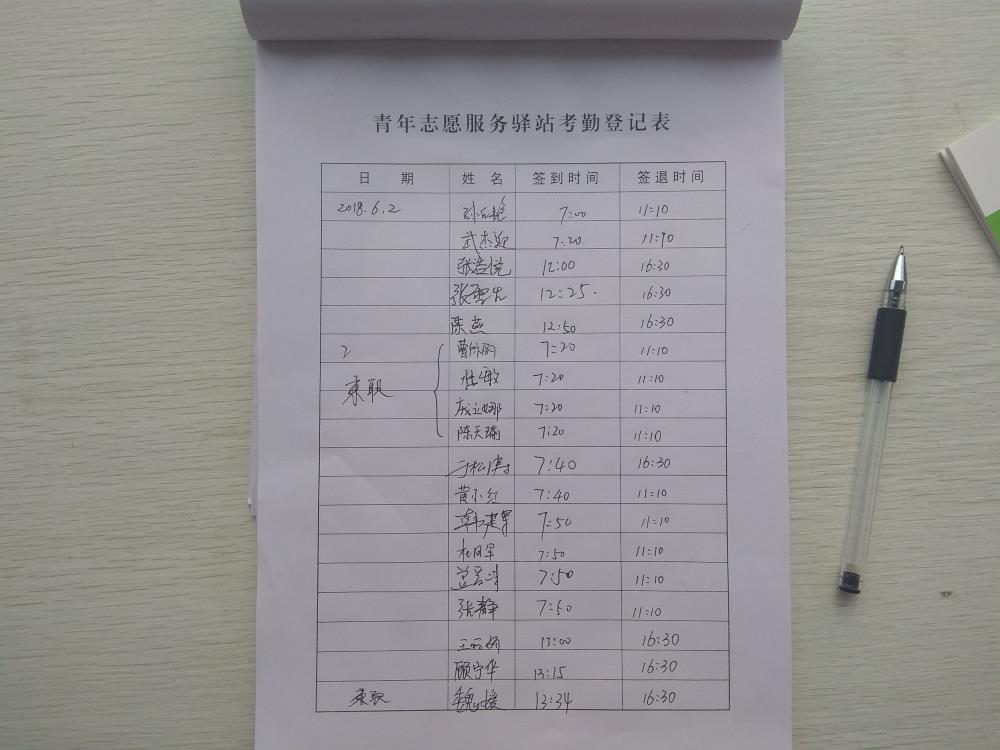 青年志愿服务驿站考勤登记表
日 期 姓 名 签到时间 签退时间
2018.6.2 7:00 11:10
武杰迎 7:20 11:10
张浩悦 12:00 16:30
张雪尤 12:25. 16:30
陈燕 12:50 16:30
7:20 11:10
兼职 杜敏 7:20 11:10
7:20 11:10
陈天瑜 7:20 11:10
于松涛 7:40 16:30
黄小红 7:40 11:10
韩建军 7:50 11:10
7:50 11:10
7:50 11:10
张静 7:50 11:10
13:00 16:30
顾宁华 13:15 16:30
兼职 魏媛 13:34 16:30